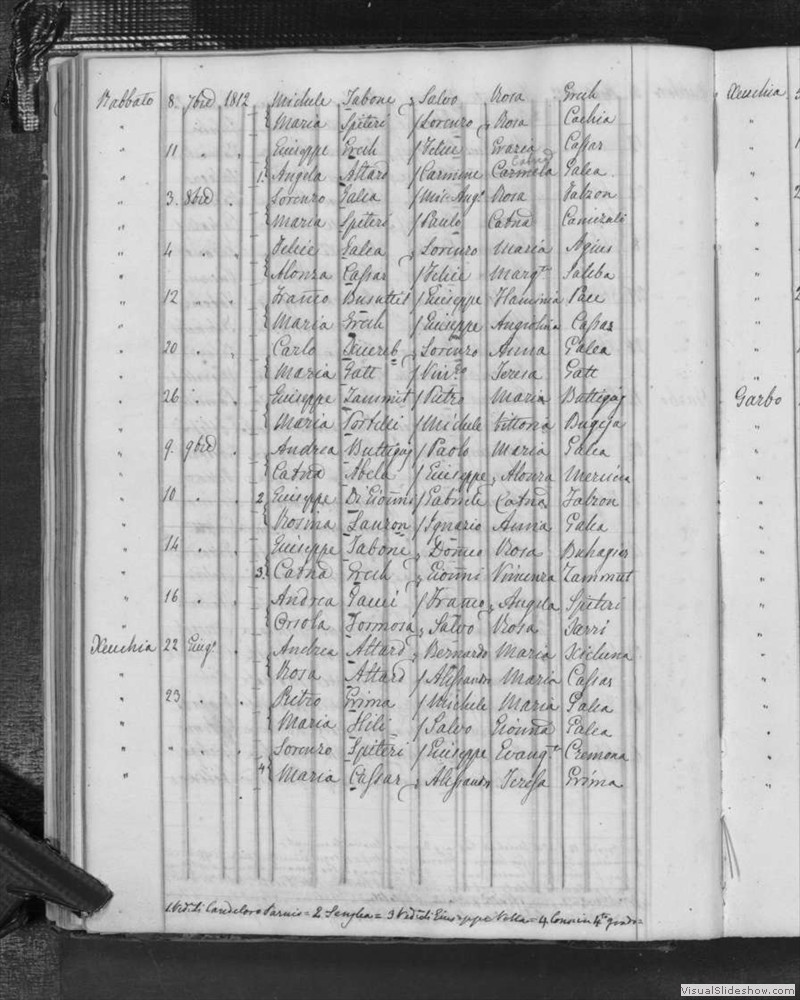 Rabbato 8. 7bre 1812 Michele Tabone, Salvo Rosa Grech
" { Maria Spiteri / Lorenzo, Rosa Cachia
" 11 . . Giuseppe Grech / Felice Grazia Cassar
" 1. { Angela Attard / Carmine Carmela Galea
" 3. 8bre . Lorenzo Galea / Mic: Ang.o Rosa Falzon
" { Maria Spiteri / Paulo Catna
" 4 . . Felice Galea, Lorenzo Maria Agius
" { Alonza Cassar / Felice Marg.ta Saliba
" 12 . . Franco Busuttil / Giuseppe Flaminia Pace
" { Maria Grech / Giuseppe Angiolina Cassar
" 20 . . Carlo Xicereb, Lorenzo Anna Galea
" { Maria Gatt / Vin.zo Teresa Gatt
" 26 . . Giuseppe Zammit / Pietro Maria Buttigieg
" { Maria Portelli / Michele Vittoria Bugeja
" 9. 9bre . Andrea Buttigieg / Paolo Maria Galea
" { Catna Abela / Giuseppe, Alonza Mercieca
" 10 . . 2 { Giuseppe Di Gionni / Gabriele Catna Falzon
" { Rosina Lauron / Ignazio Anna Galea
" 14 . . Giuseppe Tabone, Domco Rosa Buhagiar
" 3. { Catna Grech, Gionni Vincenza Zammut
" 16 . . Andrea Pacci / Franco, Angela Spiteri
" { Orsola Formosa, Salvo Rosa Xerri
Xeuchia 22 Giug.o . Andrea Attard, Bernardo Maria Xicluna
" { Rosa Attard / Alessandro Maria Cassar
" 23 . . Pietro Grima / Michele Maria Galea
" { Maria Hili / Salvo Gionna Galea
" " . . Lorenzo Spiteri / Giuseppe Evang.ta Cremona
" 4 { Maria Cassar, Alessandro Teresa Grima
1. Ved: di Candeloro = 2 Senglea = 3 Ved: di Giuseppe Vella = 4. Cons: in 4.to grado =
Xeuchia
Garbo
VisualSlideshow.com